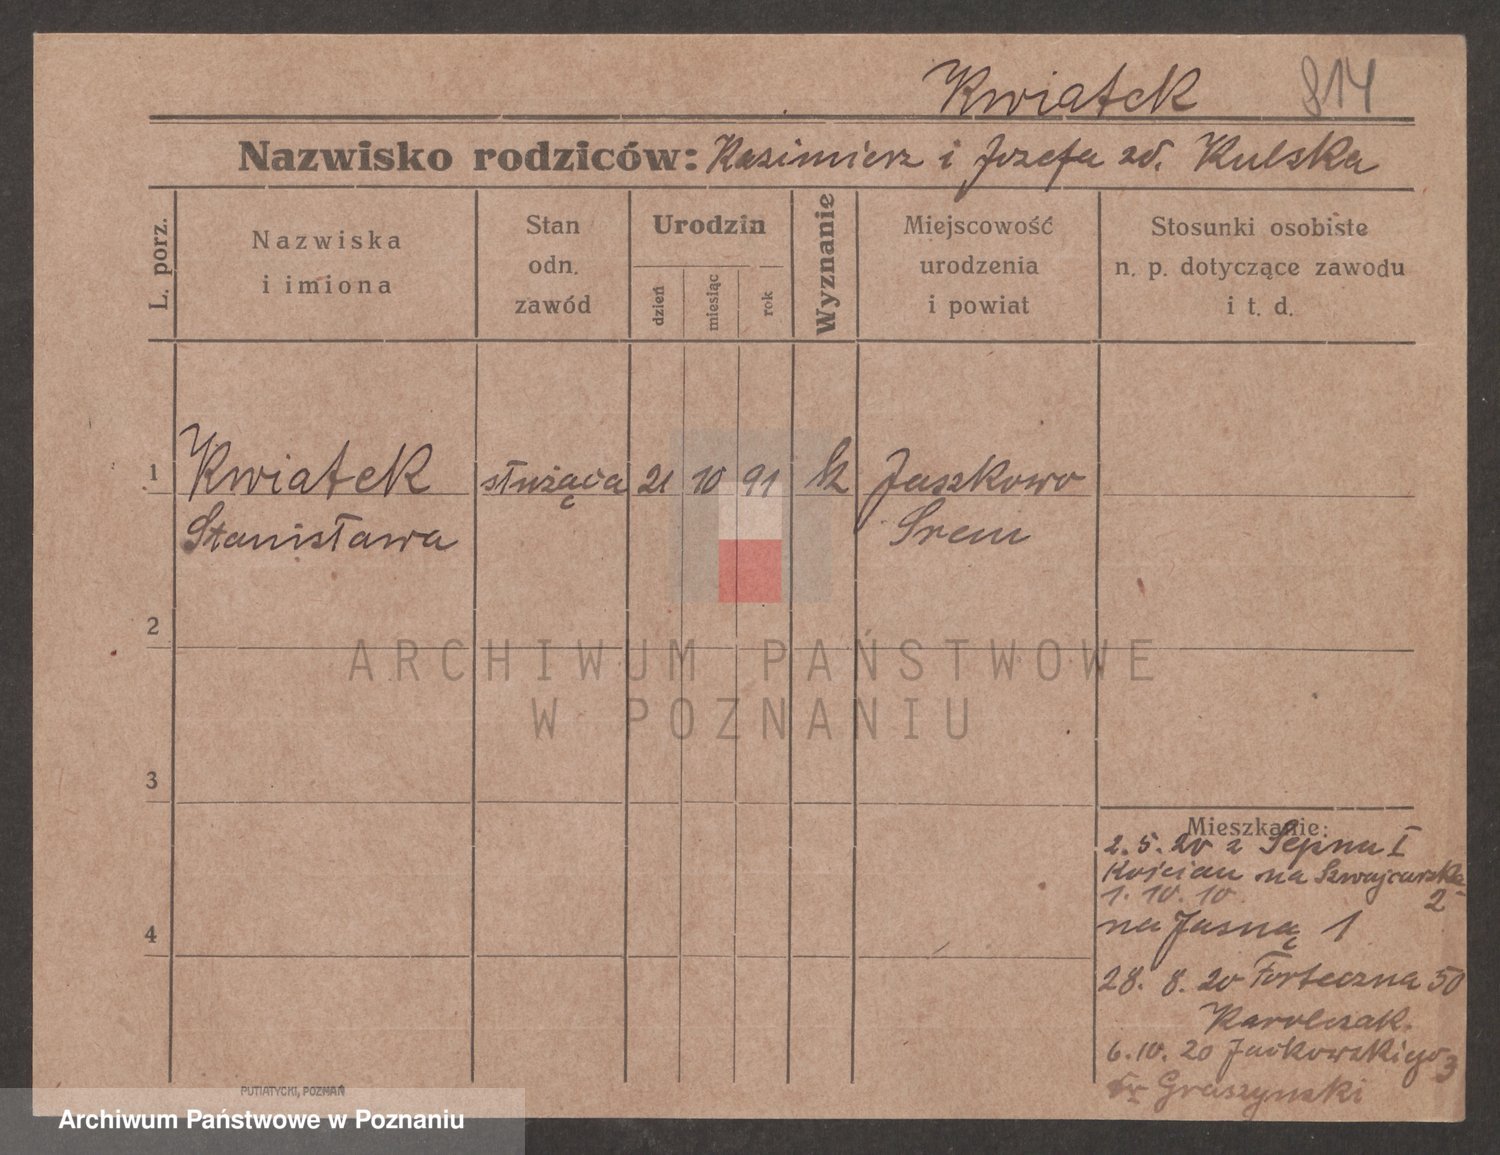 Kwiatek 814
Nazwisko rodziców: Kazimierz i Józefa zd. Kulska
L. porz.
Nazwiska
i imiona
Stan
odn.
zawód
Urodzin
dzień
miesiąc
rok
Wyznanie
Miejscowość
urodzenia
i powiat
Stosunki osobiste
n. p. dotyczące zawodu
i t. d.
1 Kwiatek służąca 21 10 91 k Jaszkowo
Stanisława Srem
2
ARCHIWUM PAŃSTWOWE
W POZNANIU
3
Mieszkanie:
2. 5. 20 z I
Kościan na Szwajcarska
1. 10. 10 2
4
na Jasną 1
28. 8. 20 Forteczna 50
Karolczak.
6. 10. 20 Jackowskiego 3
Graszynski
PUTIATYCKI, POZNAŃ
Archiwum Państwowe w Poznaniu